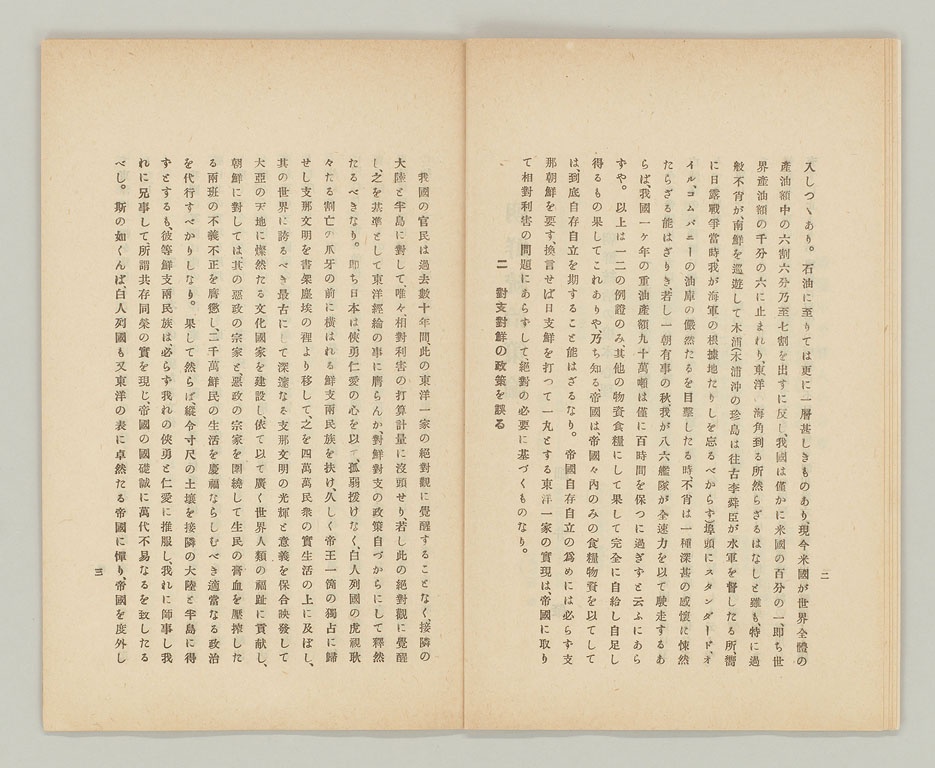 入しつゝあり。石油に至りては更に一層甚しきものあり、現今米國が世界全體の
產油額中の六割六分乃至七割を出すに反し、我國は僅かに米國の百分の一、即ち世
界產油額の千分の六に止まれり、東洋、海角到る所然らざるはなしと雖も、特に過
般不肖が、南鮮を巡遊して木浦(木浦沖の珍島は往古李舜臣が水軍を督したる所、嚮
に日露戰爭當時、我が海軍の根據地たりしを忘るべからず)埠頭にスタンダード、オ
イル、コムパニーの油庫の儼然たるを目擊したる時、不肖は一種深甚の感懷に悚然
たらざる能はざりき、若し一朝有事の秋我が八六艦隊が全速力を以て駛走するあ
らば、我國一ヶ年の重油產額九十萬噸は僅に百時間を保つに過ぎずと云ふにあら
ずや。以上は一二の例證のみ、其他の物資食糧にして果して完全に自給し自足し
得るもの果してこれありや、乃ち知る、帝國は、帝國々內のみの食糧物資を以てして
は、到底自存自立を期すること能はざるなり。帝國自存自立の爲めには必らず支
那朝鮮を要す、換言せば日支鮮を打つて一丸とする東洋一家の實現は、帝國に取り
て相對利害の問題にあらずして、絕對の必要に基づくものなり。
二 對支對鮮の政策を誤る
二
我國の官民は過去數十年間、此の東洋一家の絕對觀に覺醒することなく、接隣の
大陸と半島に對して、唯々、相對利害の打算計量に沒頭せり、若し此の絕對觀に覺醒
し、之を基準として東洋經綸の事に膺らんか、對鮮對支の政策自づからにして釋然
たるべきなり。即ち日本は、俠勇仁愛の心を以て、孤弱援けなく、白人列國の虎視耽
々たる割亡の爪牙の前に橫はれる鮮支兩民族を扶け、久しく帝王一箇の獨占に歸
せし支那文明を書架塵埃の裡より移して、之を四萬萬民衆の實生活の上に及ぼし、
其の世界に誇るべき最古にして深邃なる支那文明の光輝と意義を保合映發して
大亞の天地に燦然たる文化國家を建設し、依て以て廣く世界人類の福趾に貢獻し、
朝鮮に對しては、其の惡政の宗家と、惡政の宗家を圍繞して生民の膏血を壓搾した
る兩班の不義不正を膺懲し、二千萬鮮民の生活を慶福ならしむべき適當なる政治
を代行すべかりしなり。果して然らば、縱令寸尺の土壤を接隣の大陸と半島に得
ずとするも、彼等鮮支兩民族は、必らず我れの俠勇と仁愛に推服し、我れに師事し我
れに兄事して所謂共存同榮の實を現じ、帝國の國礎誠に萬代不易なるを致したる
べし。斯の如くんば白人列國も又東洋の表に卓然たる帝國に憚り、帝國を度外し
三